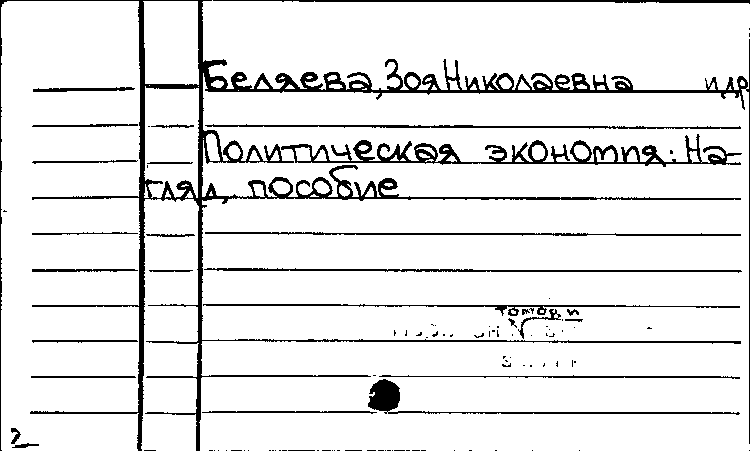 Беляева, Зоя Николаевна и др
Политическая экономия: На-
гляд. пособие